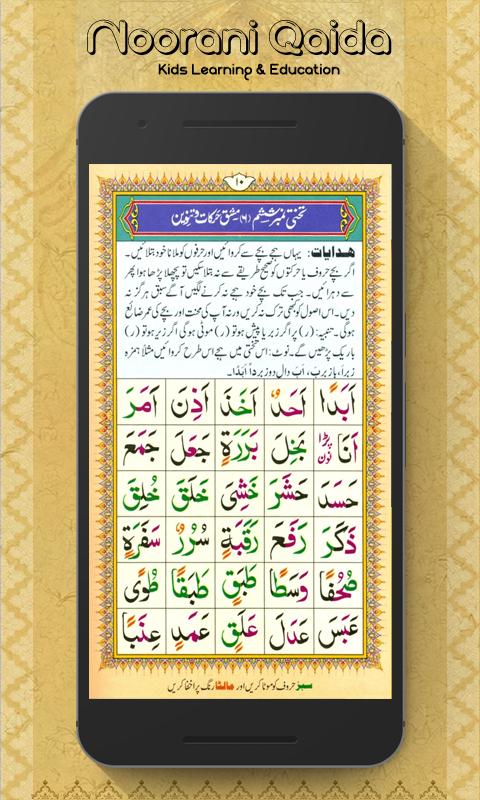 Noorani Qaida
Kids Learning & Education
١٠
تختی نمبر ششم (۶) مشق حرکات و تنوین
ہدایات: یہاں ہجے بچے سے کروائیں اور حرفوں کو ملانا خود بتلائیں۔
اگر بچے حروف یا حرکتوں کو صحیح طریقے سے نہ بتلا سکیں تو پچھلا پڑھا ہوا پھر
سے دہرائیں۔ جب تک بچے خود ہجے نہ کرنے لگیں آگے سبق ہرگز نہ
دیں۔ اس اصول کو کبھی ترک نہ کریں ورنہ آپ کی محنت اور بچے کی عمر ضائع
ہوگی۔ تنبیہ: (ر) پر اگر زبر یا پیش ہو تو (ر) موٹی ہوگی اگر زیر ہو تو (ر)
باریک پڑھیں گے۔ نوٹ: اس تختی میں ہجے اس طرح کروائیں مثلاً ہمزہ
زبر اَ، با زبر بَ، اَبَ دال دو زبر دًا اَبَدًا۔
اَبَدًا اَحَدٌ اَخَذَ اَذِنَ اَمَرَ
اَنَا نون پڑا بَخِلَ بَرَرَةٍ جَعَلَ جَمَعَ
حَسَدَ حَشَرَ خَشِيَ خَلَقَ خُلِقَ
ذَكَرَ رَفَعَ رَقَبَةٍ سُرُرٌ سَفَرَةٍ
صُحُفًا وَسَطًا طَبَقٍ طَبَقًا طُوًى
عَبَسَ عَدَلَ عَلَقٍ عَمَدٍ عِنَبًا
سبز حروف کو موٹا کریں اور مالٹا رنگ پر اخفا کریں